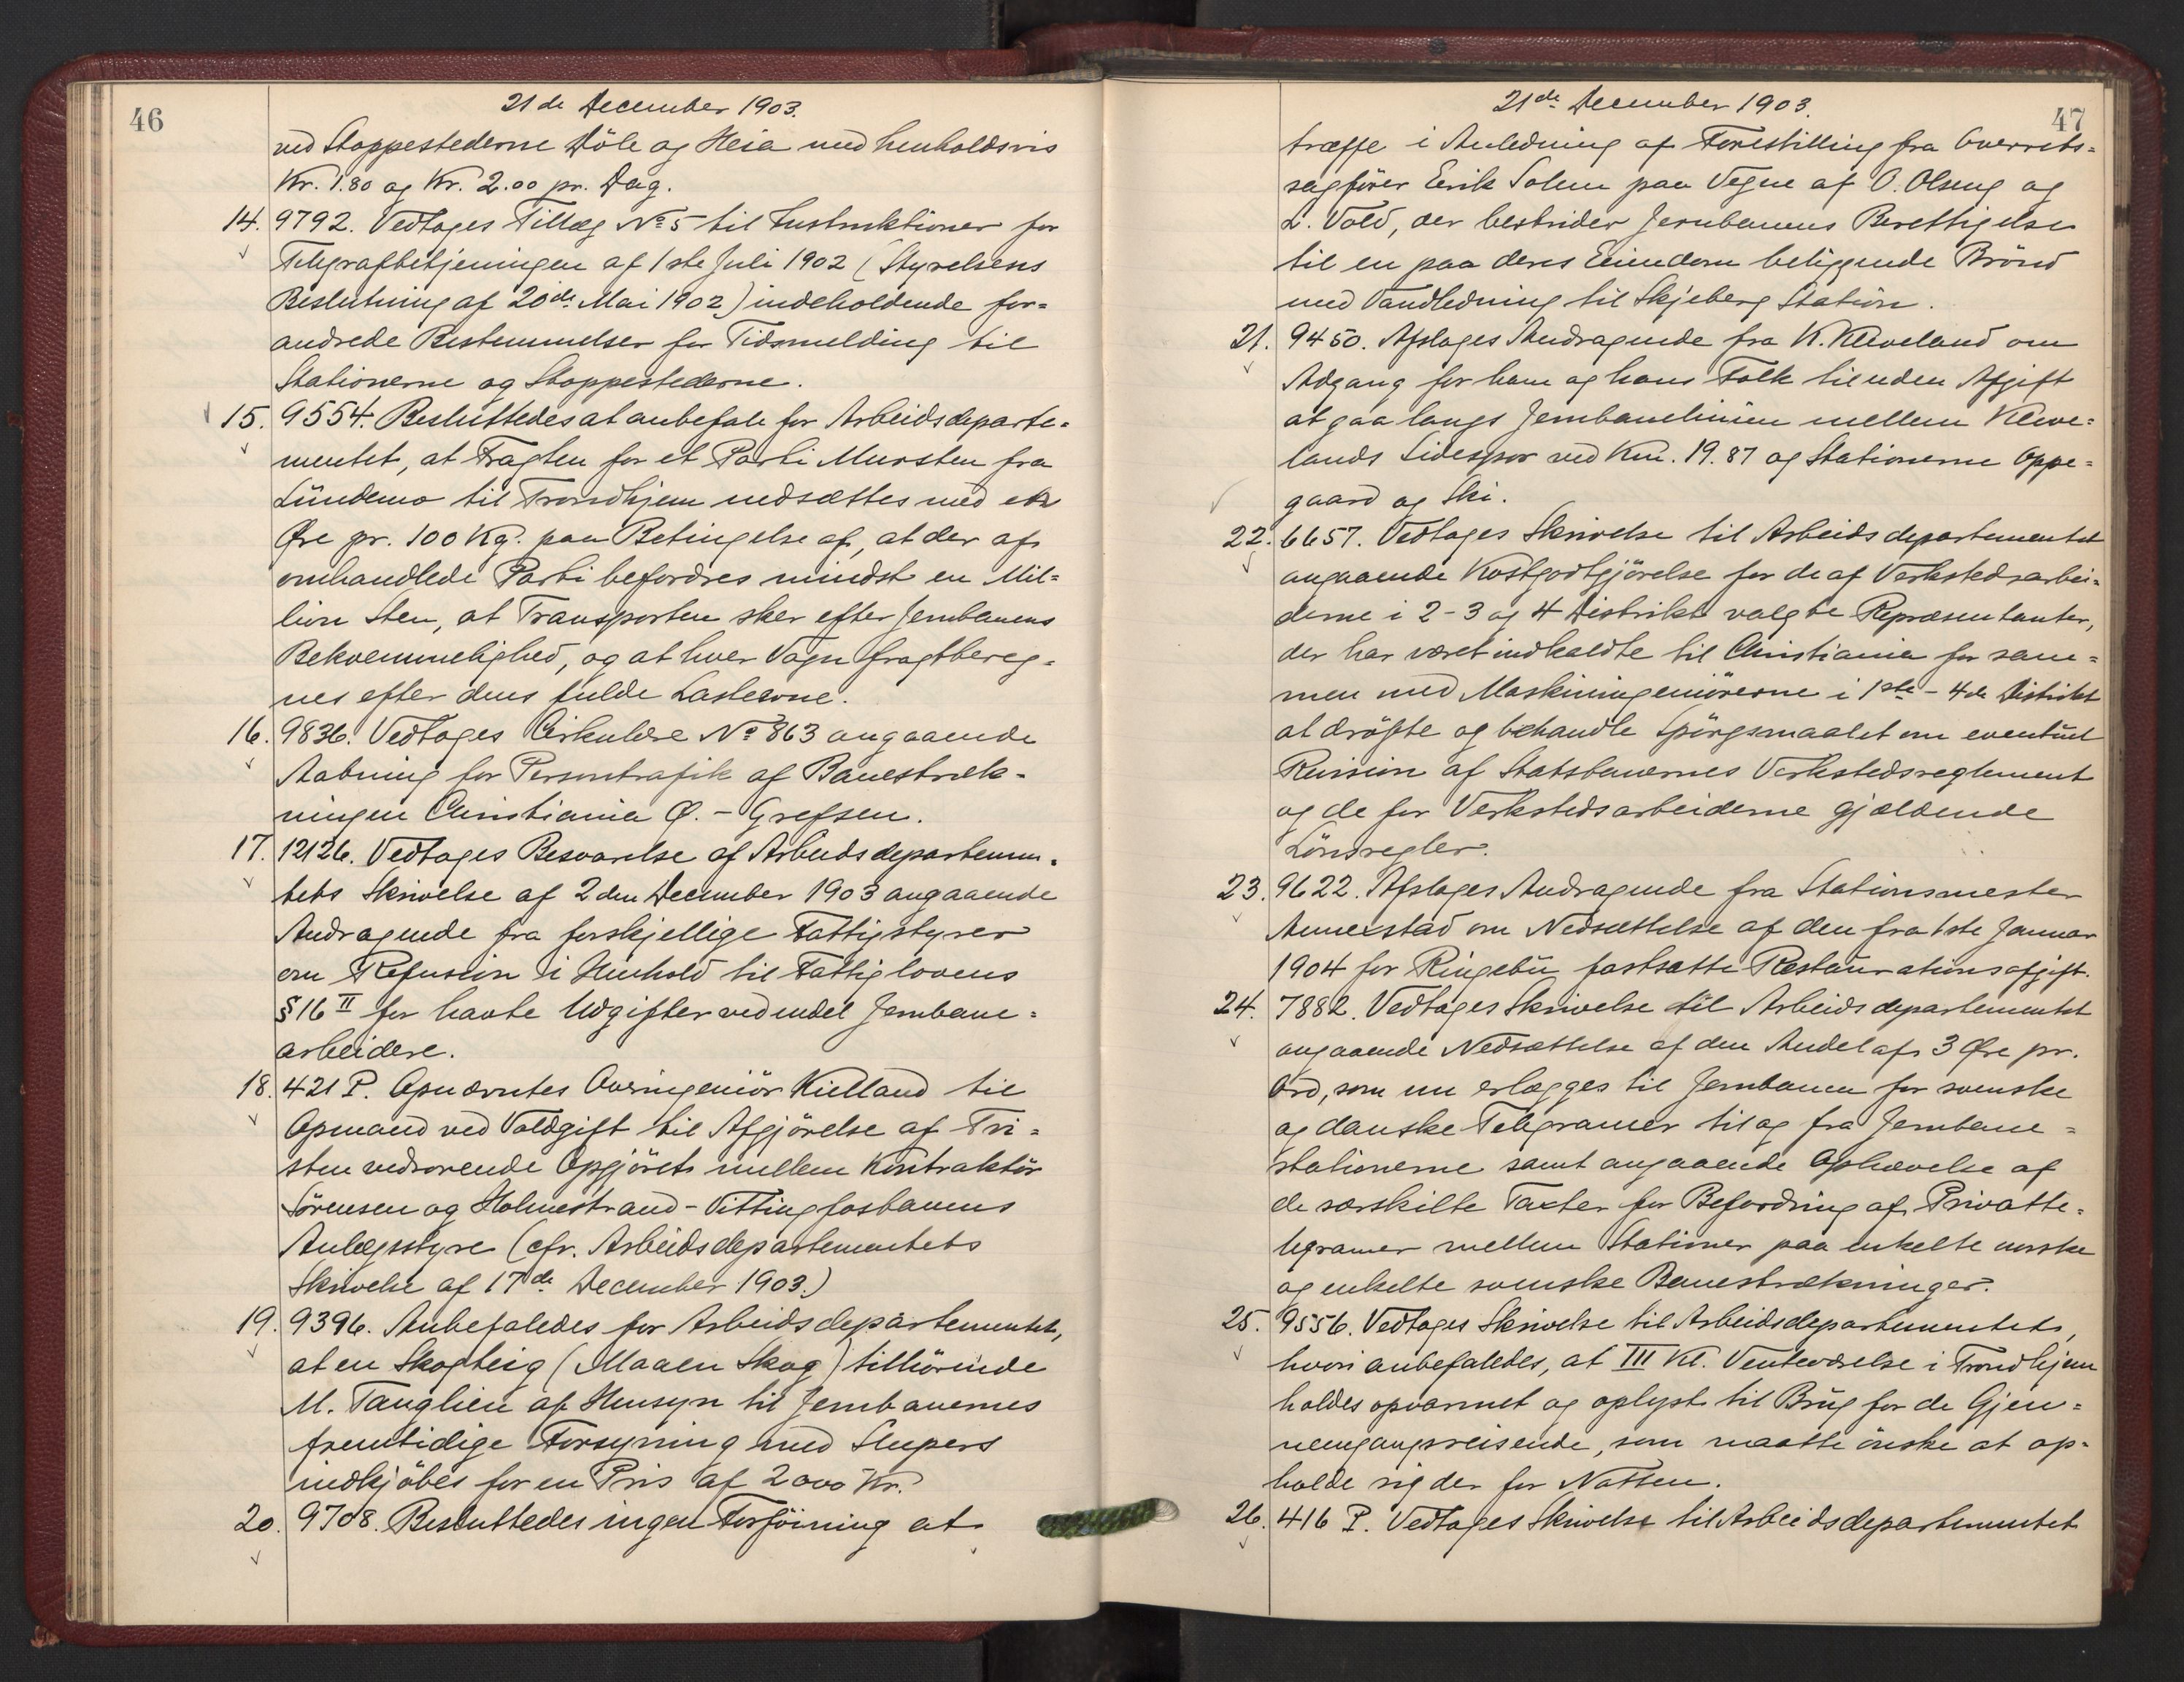 46
21de December 1903.
ved Stoppestederne Döle og Heia med henholdsvis
Kr. 1.80 og Kr. 2.00 pr. Dag.
14. 9792. Vedtages Tillæg No 5 til Instruktioner for
Telegrafbetjeningen af 1ste Juli 1902 (Styrelsens
Beslutning af 20de Mai 1902) indeholdende for=
andrede Bestemmelser for Tidsmelding til
Stationerne og Stoppestederne.
15. 9554. Besluttedes at anbefale for Arbeidsdeparte=
mentet, at Fragten for et Parti Mursten fra
Lündemo til Trondhjem nedsættes med
Øre pr. 100 Kg. paa Betingelse af, at der af
omhandlede Parti befordres mindst en Mil=
lion Sten, at Transporten sker efter Jernbanens
Bekvemmelighed, og at hver Vogn fragtbereg=
nes efter dens fulde Lasteevne.
16. 9836. Vedtages Cirkulære No 863 angaaende
Aabning for Persontrafik af Banestræk=
ningen Christiania Ø. - Grefsen.
17. 12126. Vedtages Besvarelse af Arbeidsdepartemen=
tets Skrivelse af 2den December 1903 angaaende
Andragende fra forskjellige Fattigstyrer
om Refusion i Henhold til Fattiglovens
§ 16 II for havte Udgifter ved endel Jernbane=
arbeidere.
18. 421 P. Opnævntes Overingeniör Kielland til
Opmand ved Voldgift til Afgjörelse af Tvi=
sten vedrörende Opgjörets mellem Kontraktör
Sörensen og Holmestrand-Vittingfosbanens
Anlægsstyre (cfr. Arbeidsdepartementets
Skrivelse af 17de December 1903.)
19. 9396. Anbefaledes for Arbeidsdepartementet,
at en Skogteig (Maaen Skog) tilhörende
M. Tanglien af Hensyn til Jernbanernes
fremtidige Forsyning med Sleepers
indkjöbes for en Pris af 2000 Kr.
20. 9708. Besluttedes ingen Forföining at
47
21de December 1903.
træffe i Anledning af Forestilling fra Overrets=
sagförer Eerik Solem paa Vegne af O. Olseng og
L. Vold, der bestrider Jernbanens Berettigelse
til en paa deres Eiendom beliggende Brönd
med Vandledning til Skjeberg Station.
21. 9450. Afslages Andragende fra K. Kleveland om
Adgang for ham og hans Folk til uden Afgift
at gaa langs Jernbanelinien mellem Kleve=
lands Sidespor ved Km. 19.87 og Stationerne Oppe=
gaard og Ski.
22. 6657. Vedtages Skrivelse til Arbeidsdepartementet
angaaende Kostgodtgjörelse for de af Verkstedsarbei=
derne i 2-3 og 4 Distrikt valgte Repræsentanter,
der har været indkaldte til Christiania for sam=
men med Maskiningeniörerne i 1ste - 4de Distrikt
at dröfte og behandle Spörgsmaalet om eventüel
Revision af Statsbanernes Verkstedsreglement
og de for Verkstedsarbeiderne gjældende
Lönsregler.
23. 9622. Afslages Andragende fra Stationsmester
Annerstad om Nedsættelse af den fra 1ste Januar
1904 for Ringebü fastsatte Restaurationsafgift.
24. 7882. Vedtages Skrivelse til Arbeidsdepartementet
angaaende Nedsættelse af den Andel af 3 Øre pr.
Ord, som nu erlægges til Jernbanen for svenske
og danske Telegramer til og fra Jernbane=
stationerne samt angaaende Ophævelse af
de særskilte Taxter for Befordring af Privatte=
legramer mellem Stationer paa enkelte norske
og enkelte svenske Banestrækninger.
25. 9556. Vedtages Skrivelse til Arbeidsdepartementets,
hvori anbefaledes, at III Kl. Venteværelse i Trondhjem
holdes opvarmet og oplyst til Brüg for de Gjen=
nemgangsreisende, som maatte önske at op=
holde sig der for Natten.
26. 416 P. Vedtages Skrivelse til Arbeidsdepartementet